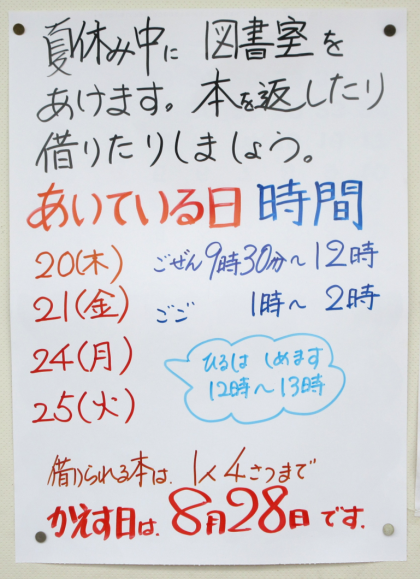 夏休み中に 図書室を
あけます。本を返したり
借りたりしましょう。
あいている日 時間
20(木) ごぜん9時30分~12時
21(金) ごご 1時~2時
24(月)
25(火)
ひるは しめます
12時~13時
借りられる本は、1人4さつまで
かえす日は、8月28日です。